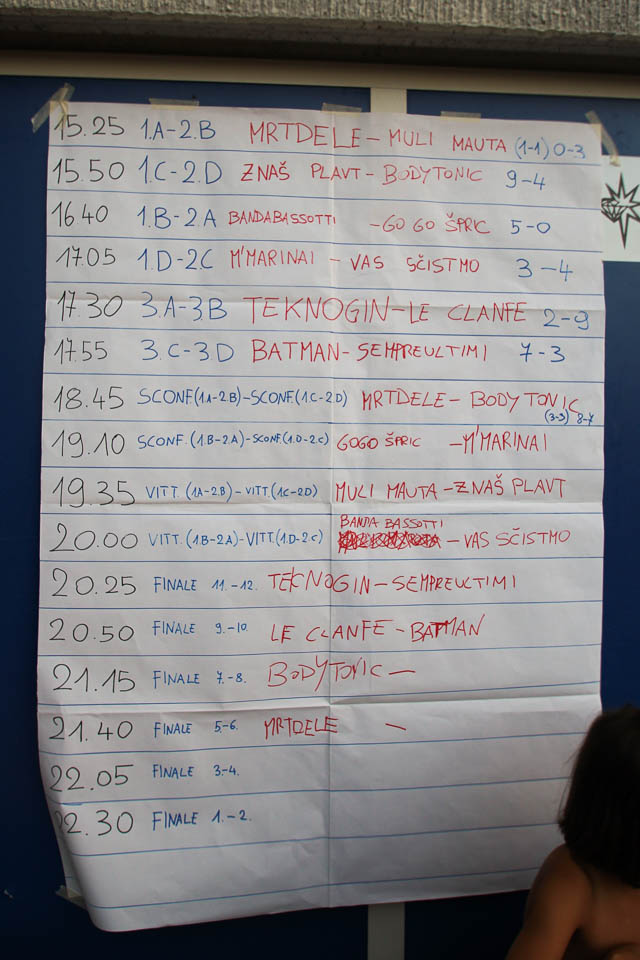 15.25 1.A-2.B MRTDELE - MULI MAUTA (1-1) 0-3
15.50 1.C-2.D ZNAŠ PLAVT - BODYTONIC 9-4
16 40 1.B-2.A BANDABASSOTTI - GO GO ŠPRIC 5-0
17.05 1.D-2C M'MARINAI - VAS SČISTMO 3-4
17.30 3.A-3B TEKNOGIN-LE CLANFE 2-9
17.55 3.C-3D BATMAN-SEMPREULTIMI 7-3
18.45 SCONF.(1A-2.B)-SCONF.(1.C-2.D) MRTDELE- BODYTONIC (3-3) 8-7
19.10 SCONF.(1.B-2.A)-SCONF.(1.D-2.C) GOGO ŠPRIC -M'MARINAI
19.35 VITT.(1A-2.B)-VITT.(1.C-2.D) MULI MAUTA -ZNAŠ PLAVT
20.00 VITT.(1.B-2.A)-VITT.(1.D-2.C) BANDA BASSOTTI - VAS SČISTMO
20.25 FINALE 11.-12. TEKNOGIN-SEMPREULTIMI
20.50 FINALE 9.-10. LE CLANFE-BATMAN
21.15 FINALE 7.-8. BODYTONIC -
21.40 FINALE 5-6. MRTDELE -
22.05 FINALE 3-4.
22.30 FINALE 1.-2.